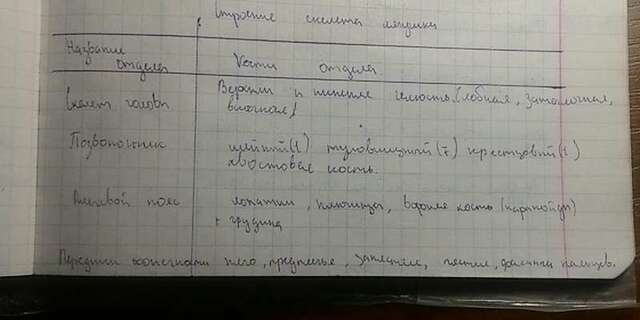 Строение скелета лягушки
Название отдела
Кости отдела
Скелет головы
Верхняя и нижняя челюсть (лобная, затылочная,
височная)
Позвоночник
шейный (1) туловищный (7) крестцовый (1)
хвостовая кость.
Плечевой пояс
лопатки, ключицы, воронья кость (коракоид)
+ грудина
Передние конечности плечо, предплечье, запястье, пястье, фаланги пальцев.